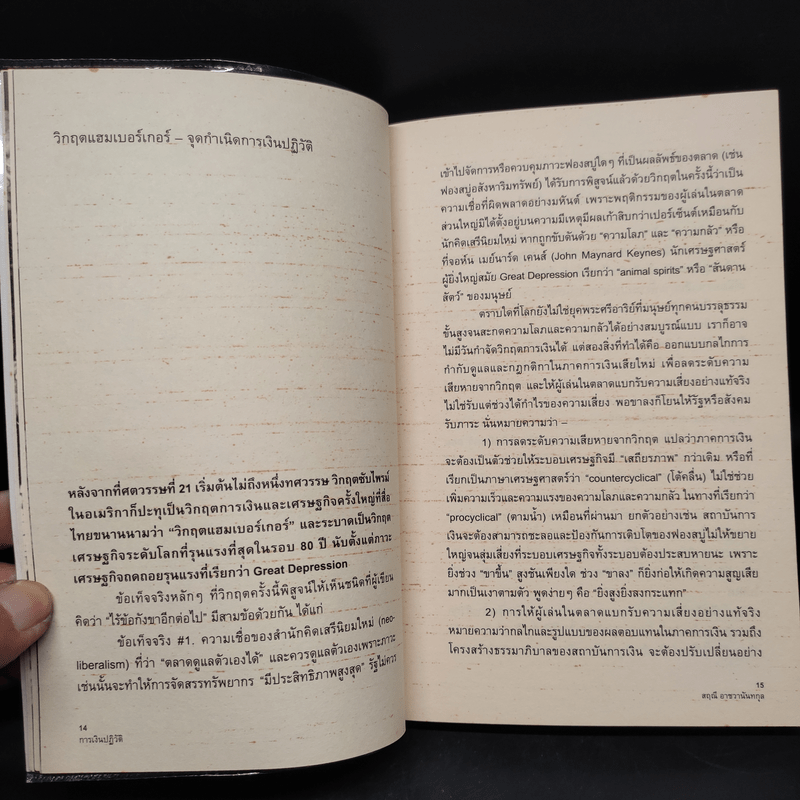 วิกฤตแฮมเบอร์เกอร์ – จุดกำเนิดการเงินปฏิวัติ
หลังจากที่ศตวรรษที่ 21 เริ่มต้นไม่ถึงหนึ่งทศวรรษ วิกฤตซับไพรม์
ในอเมริกาก็ปะทุเป็นวิกฤตการเงินและเศรษฐกิจครั้งใหญ่ที่สื่อ
ไทยขนานนามว่า “วิกฤตแฮมเบอร์เกอร์” และระบาดเป็นวิกฤต
เศรษฐกิจระดับโลกที่รุนแรงที่สุดในรอบ 80 ปี นับตั้งแต่ภาวะ
เศรษฐกิจถดถอยรุนแรงที่เรียกว่า Great Depression
ข้อเท็จจริงหลักๆ ที่วิกฤตครั้งนี้พิสูจน์ให้เห็นชนิดที่ผู้เขียน
คิดว่า “ไร้ข้อกังขาอีกต่อไป” มีสามข้อด้วยกัน ได้แก่
ข้อเท็จจริง #1. ความเชื่อของสำนักคิดเสรีนิยมใหม่ (neo-
liberalism) ที่ว่า “ตลาดดูแลตัวเองได้” และควรดูแลตัวเองเพราะภาวะ
เช่นนั้นจะทำให้การจัดสรรทรัพยากร “มีประสิทธิภาพสูงสุด” รัฐไม่ควร
14
การเงินปฏิวัติ
เข้าไปจัดการหรือควบคุมภาวะฟองสบู่ใดๆ ที่เป็นผลลัพธ์ของตลาด (เช่น
ฟองสบู่อสังหาริมทรัพย์) ได้รับการพิสูจน์แล้วด้วยวิกฤตในครั้งนี้ว่าเป็น
ความเชื่อที่ผิดพลาดอย่างมหันต์ เพราะพฤติกรรมของผู้เล่นในตลาด
ส่วนใหญ่มิได้ตั้งอยู่บนความมีเหตุมีผลเก้าสิบกว่าเปอร์เซ็นต์เหมือนกับ
นักคิดเสรีนิยมใหม่ หากถูกขับดันด้วย “ความโลภ” และ “ความกลัว” หรือ
ที่จอห์น เมย์นาร์ด เคนส์ (John Maynard Keynes) นักเศรษฐศาสตร์
ผู้ยิ่งใหญ่สมัย Great Depression เรียกว่า “animal spirits” หรือ “สันดาน
สัตว์” ของมนุษย์
ตราบใดที่โลกยังไม่ใช่ยุคพระศรีอาริย์ที่มนุษย์ทุกคนบรรลุธรรม
ขั้นสูงจนสะกดความโลภและความกลัวได้อย่างสมบูรณ์แบบ เราก็อาจ
ไม่มีวันกำจัดวิกฤตการเงินได้ แต่สองสิ่งที่ทำได้คือ ออกแบบกลไกการ
กำกับดูแลและกฎกติกาในภาคการเงินเสียใหม่ เพื่อลดระดับความ
เสียหายจากวิกฤต และให้ผู้เล่นในตลาดแบกรับความเสี่ยงอย่างแท้จริง
ไม่ใช่รับแต่ช่วงได้กำไรของความเสี่ยง พอขาลงก็โยนให้รัฐหรือสังคม
รับภาระ นั่นหมายความว่า –
1) การลดระดับความเสียหายจากวิกฤต แปลว่าภาคการเงิน
จะต้องเป็นตัวช่วยให้ระบอบเศรษฐกิจมี “เสถียรภาพ” กว่าเดิม หรือที่
เรียกเป็นภาษาเศรษฐศาสตร์ว่า “countercyclical” (โต้คลื่น) ไม่ใช่ช่วย
เพิ่มความเร็วและความแรงของความโลภและความกลัว ในทางที่เรียกว่า
“procyclical” (ตามน้ำ) เหมือนที่ผ่านมา ยกตัวอย่างเช่น สถาบันการ
เงินจะต้องสามารถชะลอและป้องกันการเติบโตของฟองสบู่ไม่ให้ขยาย
ใหญ่จนสุ่มเสี่ยงที่ระบอบเศรษฐกิจทั้งระบอบต้องประสบหายนะ เพราะ
ยิ่งช่วง “ขาขึ้น” สูงชันเพียงใด ช่วง “ขาลง” ก็ยิ่งก่อให้เกิดความสูญเสีย
มากเป็นเงาตามตัว พูดง่ายๆ คือ “ยิ่งสูงยิ่งลงกระแทก”
2) การให้ผู้เล่นในตลาดแบกรับความเสี่ยงอย่างแท้จริง
หมายความว่ากลไกและรูปแบบของผลตอบแทนในภาคการเงิน รวมถึง
โครงสร้างธรรมาภิบาลของสถาบันการเงิน จะต้องปรับเปลี่ยนอย่าง
15
สฤณี อาชวานันทกุล